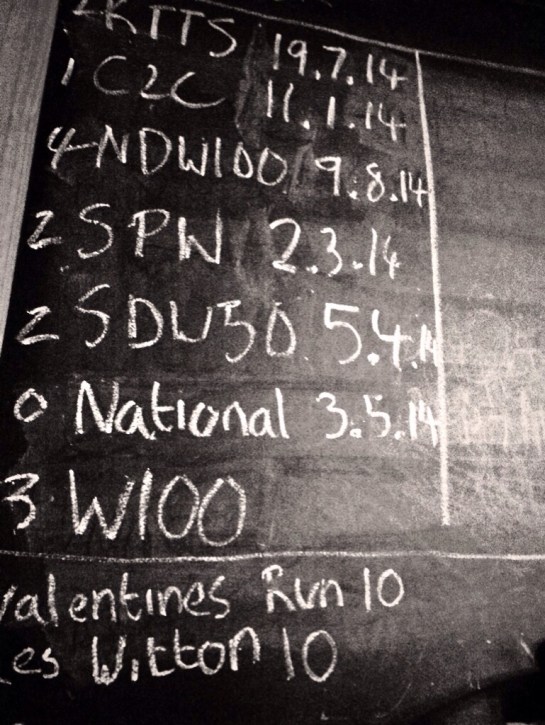 2 KTTS 19.7.14
1 C2C 11.1.14
4 NDW100 9.8.14
2 SPW 2.3.14
2 SDW50 5.4.14
0 National 3.5.14
3 W100
Valentines Run 10
es Witton 10